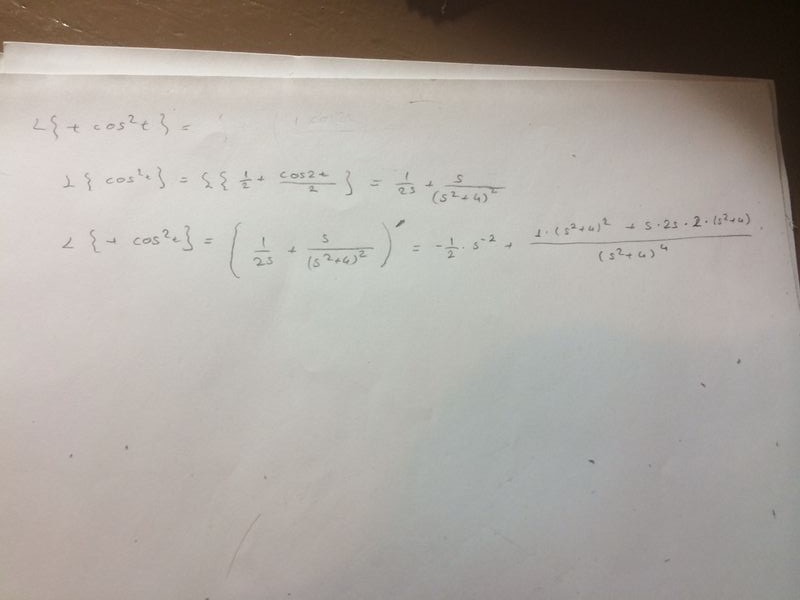 L{t cos²t} =
L{cos²t} = L{1/2 + cos2t/2} = 1/2s + s/(s²+4)²
L{t cos²t} = (1/2s + s/(s²+4)²)' = -1/2 · s⁻² + 1·(s²+4)² + s·2s·2·(s²+4)/(s²+4)⁴